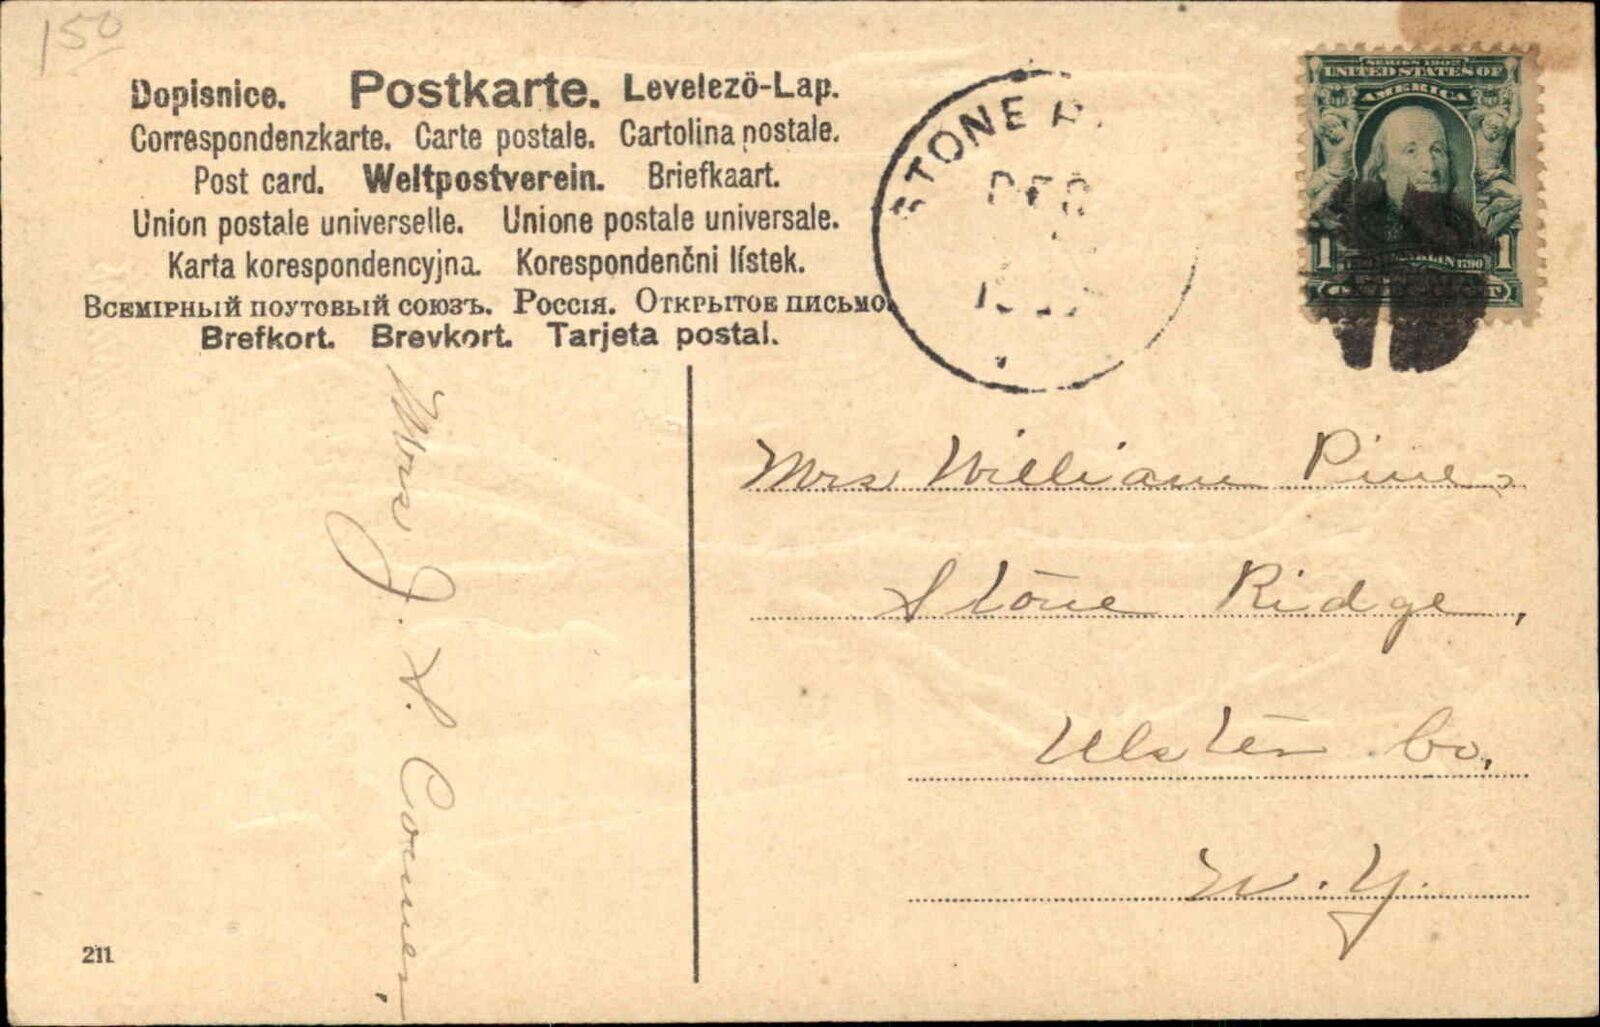 150
Dopisnice. Postkarte. Levelezö-Lap.
Correspondenzkarte. Carte postale. Cartolina postale.
Post card. Weltpostverein. Briefkaart.
Union postale universelle. Unione postale universale.
Karta korespondencyjna. Korespondenčni lístek.
Всемірный поутовый союзъ. Россія. Открытое письмо.
Brefkort. Brevkort. Tarjeta postal.
STONE R
DEC
SERIES 1902
UNITED STATES OF
AMERICA
1 FRANKLIN 1790 1
Mrs William Pine,
Stone Ridge,
Ulster Co,
N.Y.
Mrs J. S. Conner,
211